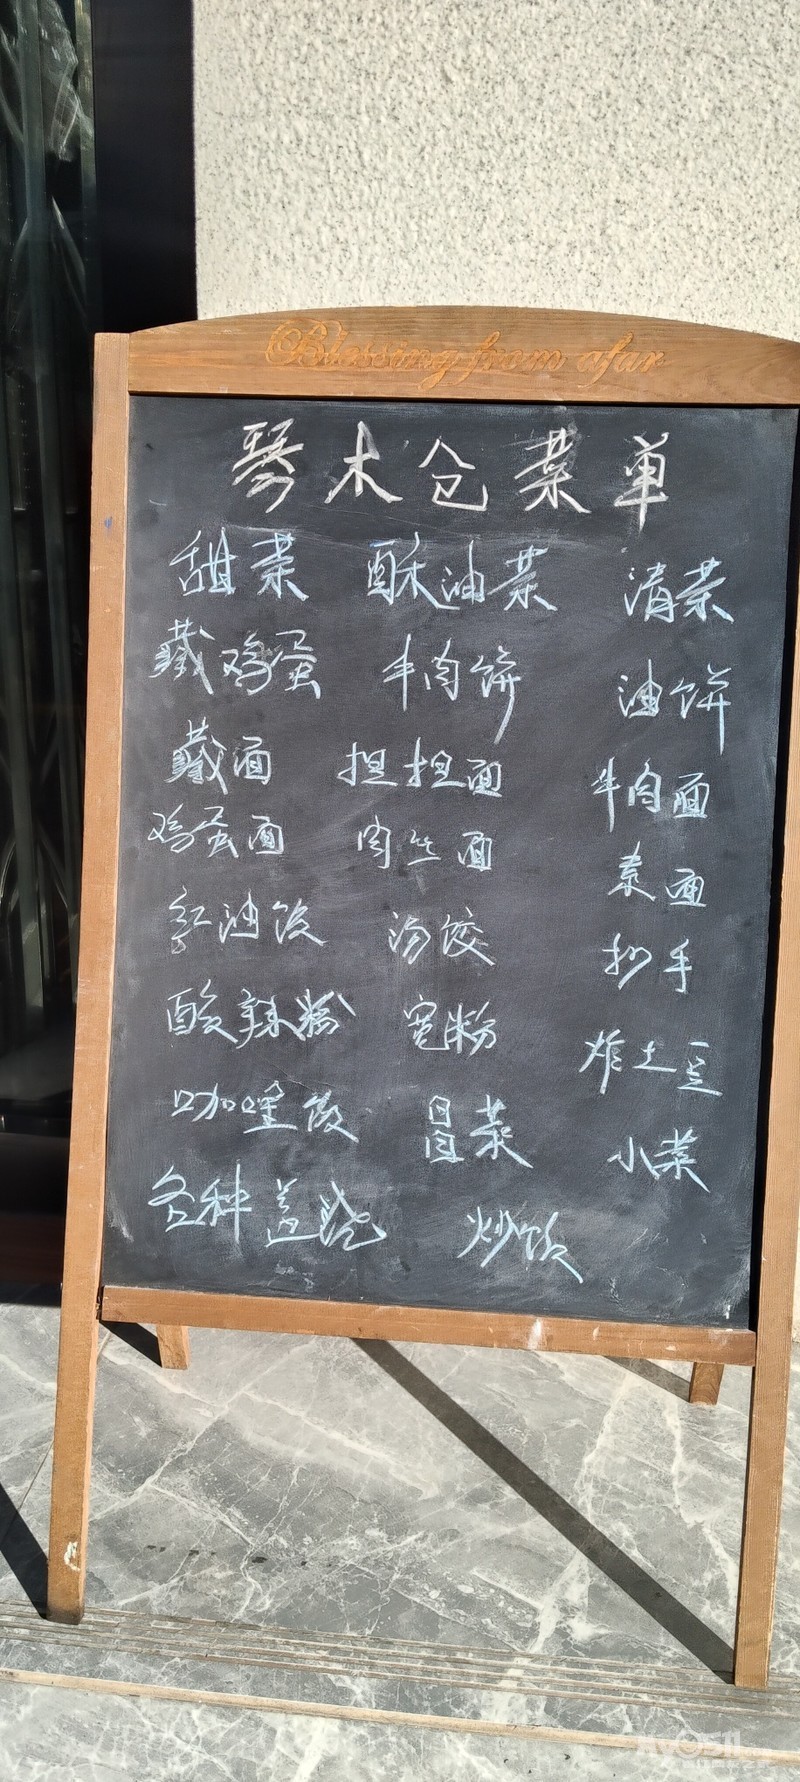 Blessing from afar
琴木仓菜单
甜茶 酥油茶 清茶
藏鸡蛋 牛肉饼 油饼
藏面 担担面 牛肉面
鸡蛋面 肉丝面 素面
红油饺 汤饺 抄手
酸辣粉 宽粉 炸土豆
咖喱饭 冒菜 小菜
各种盖浇 炒饭